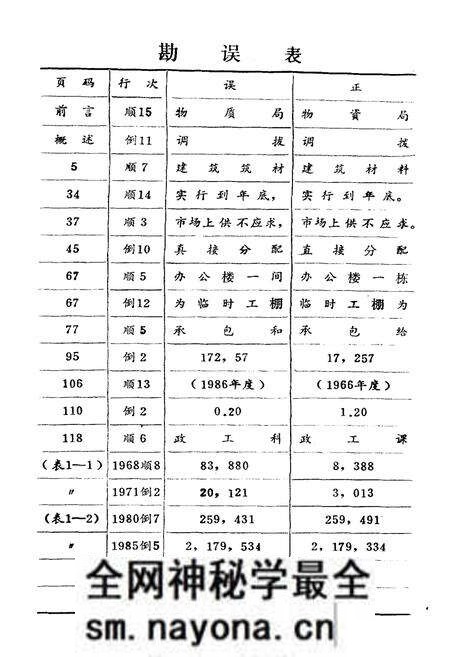 勘误表
页码 行次 误 正
前言 顺15 物质局 物资局
概述 倒11 调拨 调拨
5 顺7 建筑筑材 建筑材料
34 顺14 实行到年底， 实行到年底。
37 顺3 市场上供不应求， 市场上供不应求。
45 倒10 真接分配 直接分配
67 顺5 办公楼一间 办公楼一栋
67 倒12 为临时工棚 临时工棚为
77 顺5 承包和 承包给
95 倒2 172，57 17，257
106 顺13 （1986年度） （1966年度）
110 倒2 0.20 1.20
118 顺6 政工科 政工课
（表1—1） 1968顺8 83，880 8，388
〃 1971倒2 20，121 3，013
（表1—2） 1980倒7 259，431 259，491
〃 1985倒5 2，179，534 2，179，334
全网神秘学最全
sm.nayona.cn